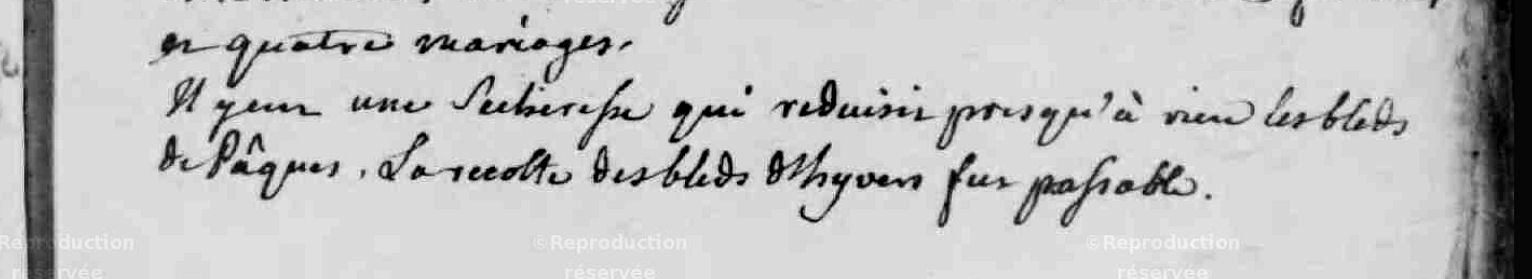 et quatre mariages.
Il y eut une secheresse qui reduisit presqu'à rien les bleds
de Pâques. La recolte des bleds d'hyvers fut passable.
©Reproduction réservée
©Reproduction réservée
©Reproduction réservée